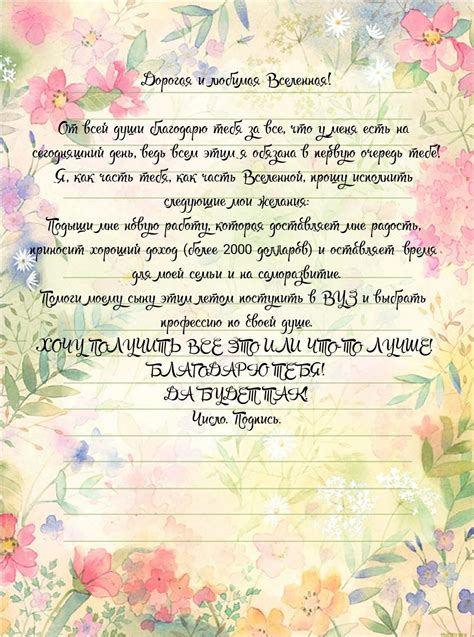 Дорогая и любимая Вселенная!
От всей души благодарю тебя за все, что у меня есть на
сегодняшний день, ведь всем этим я обязана в первую очередь тебе!
Я, как часть тебя, как часть Вселенной, прошу исполнить
следующие мои желания:
Подыщи мне новую работу, которая доставляет мне радость,
приносит хороший доход (более 2000 долларов) и оставляет время
для моей семьи и на саморазвитие.
Помоги моему сыну этим летом поступить в ВУЗ и выбрать
профессию по своей душе.
ХОЧУ ПОЛУЧИТЬ ВСЕ ЭТО ИЛИ ЧТО-ТО ЛУЧШЕ!
БЛАГОДАРЮ ТЕБЯ!
ДА БУДЕТ ТАК!
Число. Подпись.